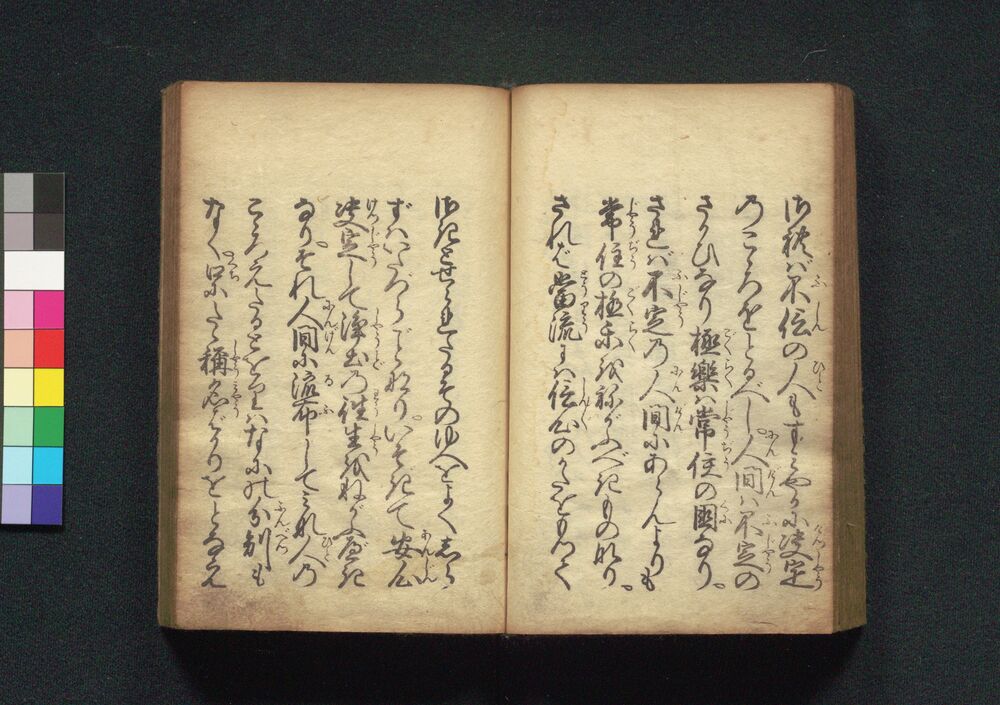 不信の人もすみやかに决定
のこゝろをとるべし。人間は不定の
さかひなり極樂は常住の國なり。
されば不定の人間にあらんよりも
常住の極樂をねがふべきものなり。
されば當流には信心のかたをもて
さきとせられたるそのゆへをよくしら
ずはいたづらごとなり。いそぎて安心
决定して淨土の往生をねがふべき
なり。それ人間に流布してみな人の
こゝろえたるとをりはなにの分別も
なく口にたゞ稱名ばかりをとなへ